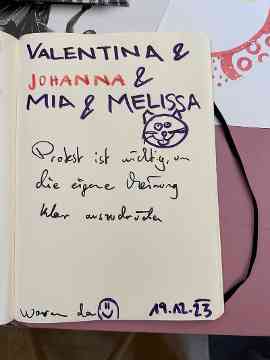 VALENTINA &
JOHANNA &
MIA & MELISSA
Protest ist wichtig, um
die eigene Meinung
klar auszudrücken
waren da
19.12.23